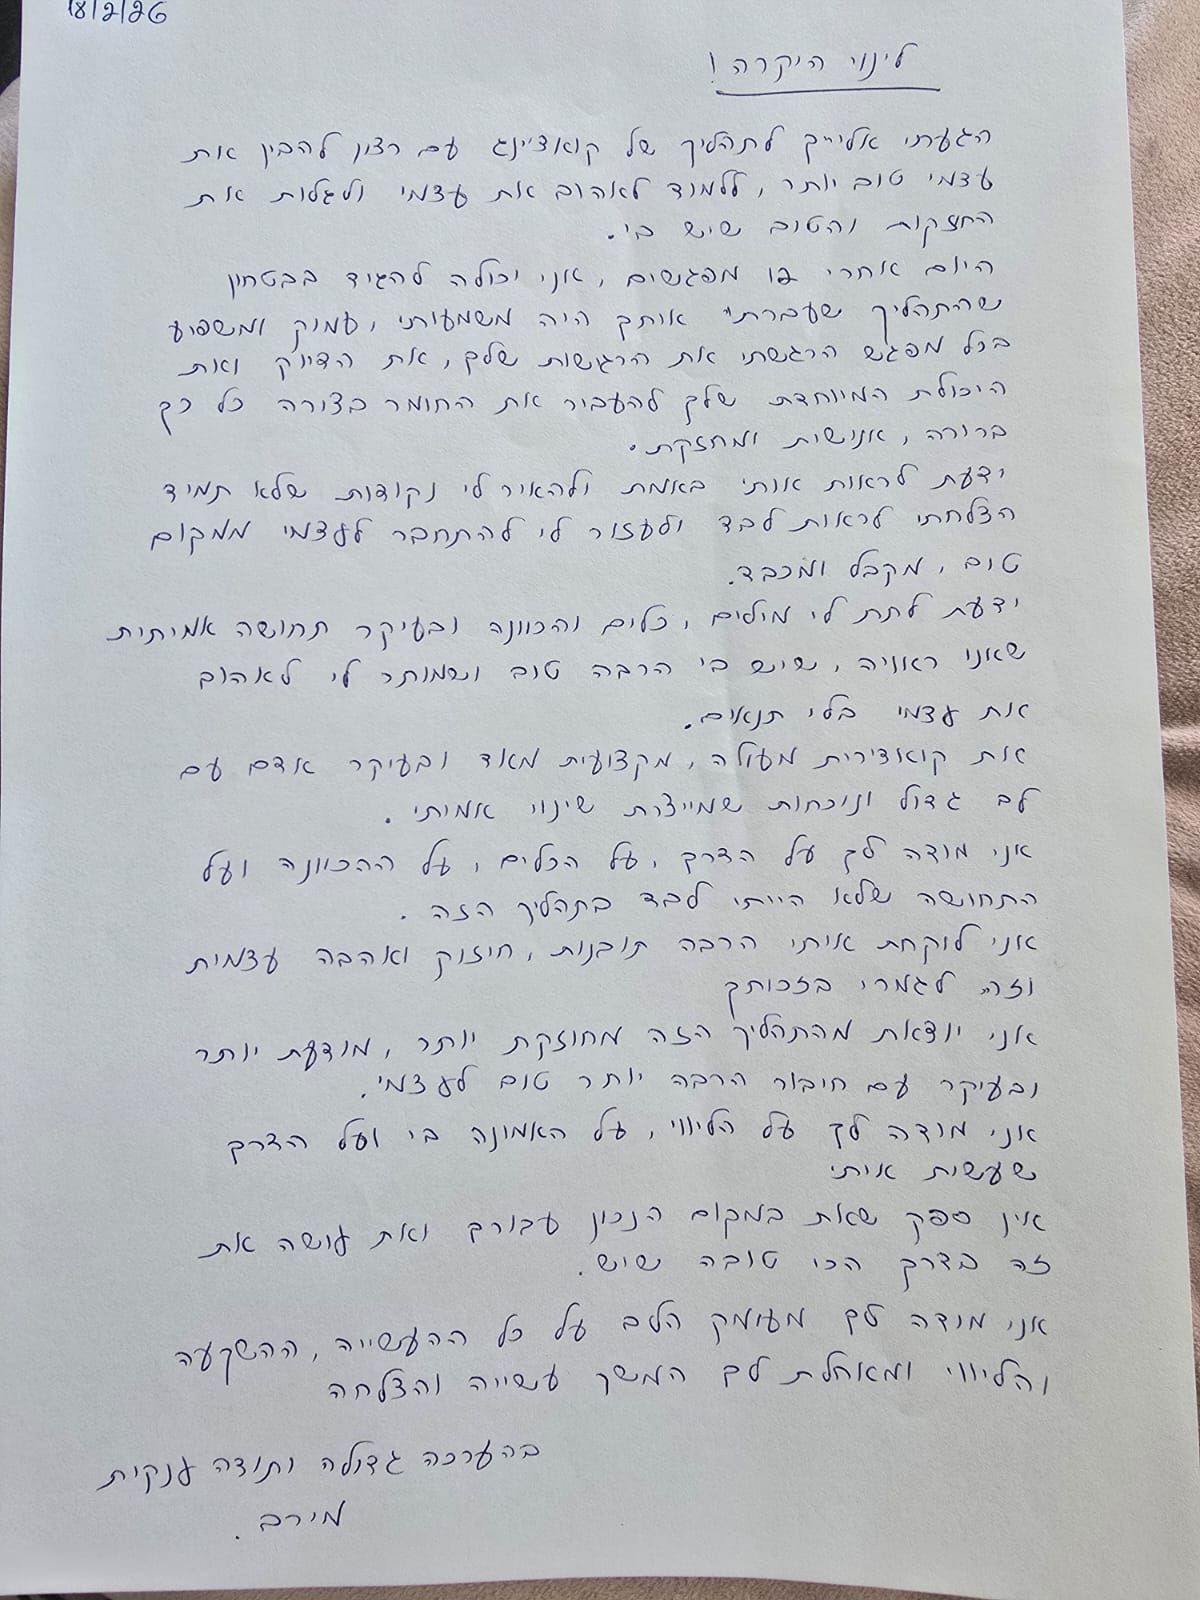 18/2/26
לינוי היקרה!
הגעתי אלייך לתהליך של קואצ'ינג עם רצון להבין את
עצמי טוב יותר, ללמוד לאהוב את עצמי ולגלות את
החזקות והטוב שיש בי.
היום אחרי מפגשים, אני יכולה להגיד בבטחון
שהתהליך שעברתי אותך היה משמעותי, עמוק ומשפיע
בכל מפגש הרגשתי את הרגישות שלך, את הדיוק ואת
היכולת המיוחדת שלך להעביר את החומר בצורה כל כך
ברורה, אנושית ומחזקת.
ידעת לראות אותי באמת ולהאיר לי נקודות שלא תמיד
הצלחתי לראות לבד ולעזור לי להתחבר לעצמי ממקום
טוב, מקבל ומכבד.
ידעת לתת לי מילים, כלים והכוונה ובעיקר תחושה אמיתית
שאני ראויה, שיש בי הרבה טוב ושמותר לי לאהוב
את עצמי בלי תנאים.
את קואצ'רית מעולה, מקצועית מאוד ובעיקר אדם עם
לב גדול ונוכחות שמייצרת שינוי אמיתי.
אני מודה לך על הדרך, על הכלים, על ההכוונה ועל
התחושה שלא הייתי לבד בתהליך הזה.
אני לוקחת איתי הרבה תובנות, חיזוק ואהבה עצמית
וזה לגמרי בזכותך
אני יוצאת מהתהליך הזה מחוזקת יותר, מודעת יותר
ובעיקר עם חיבור הרבה יותר טוב לעצמי.
אני מודה לך על הליווי, על האמונה בי ועל הדרך
שעשית איתי
אין ספק שאת במקום הנכון עבורך ואת עושה את
זה בדרך הכי טובה שיש.
אני מודה לך מעומק הלב על כל ההעשייה, ההשקעה
והליווי ומאחלת לך המשך עשייה והצלחה
בהערכה גדולה ותודה ענקית
מירב.